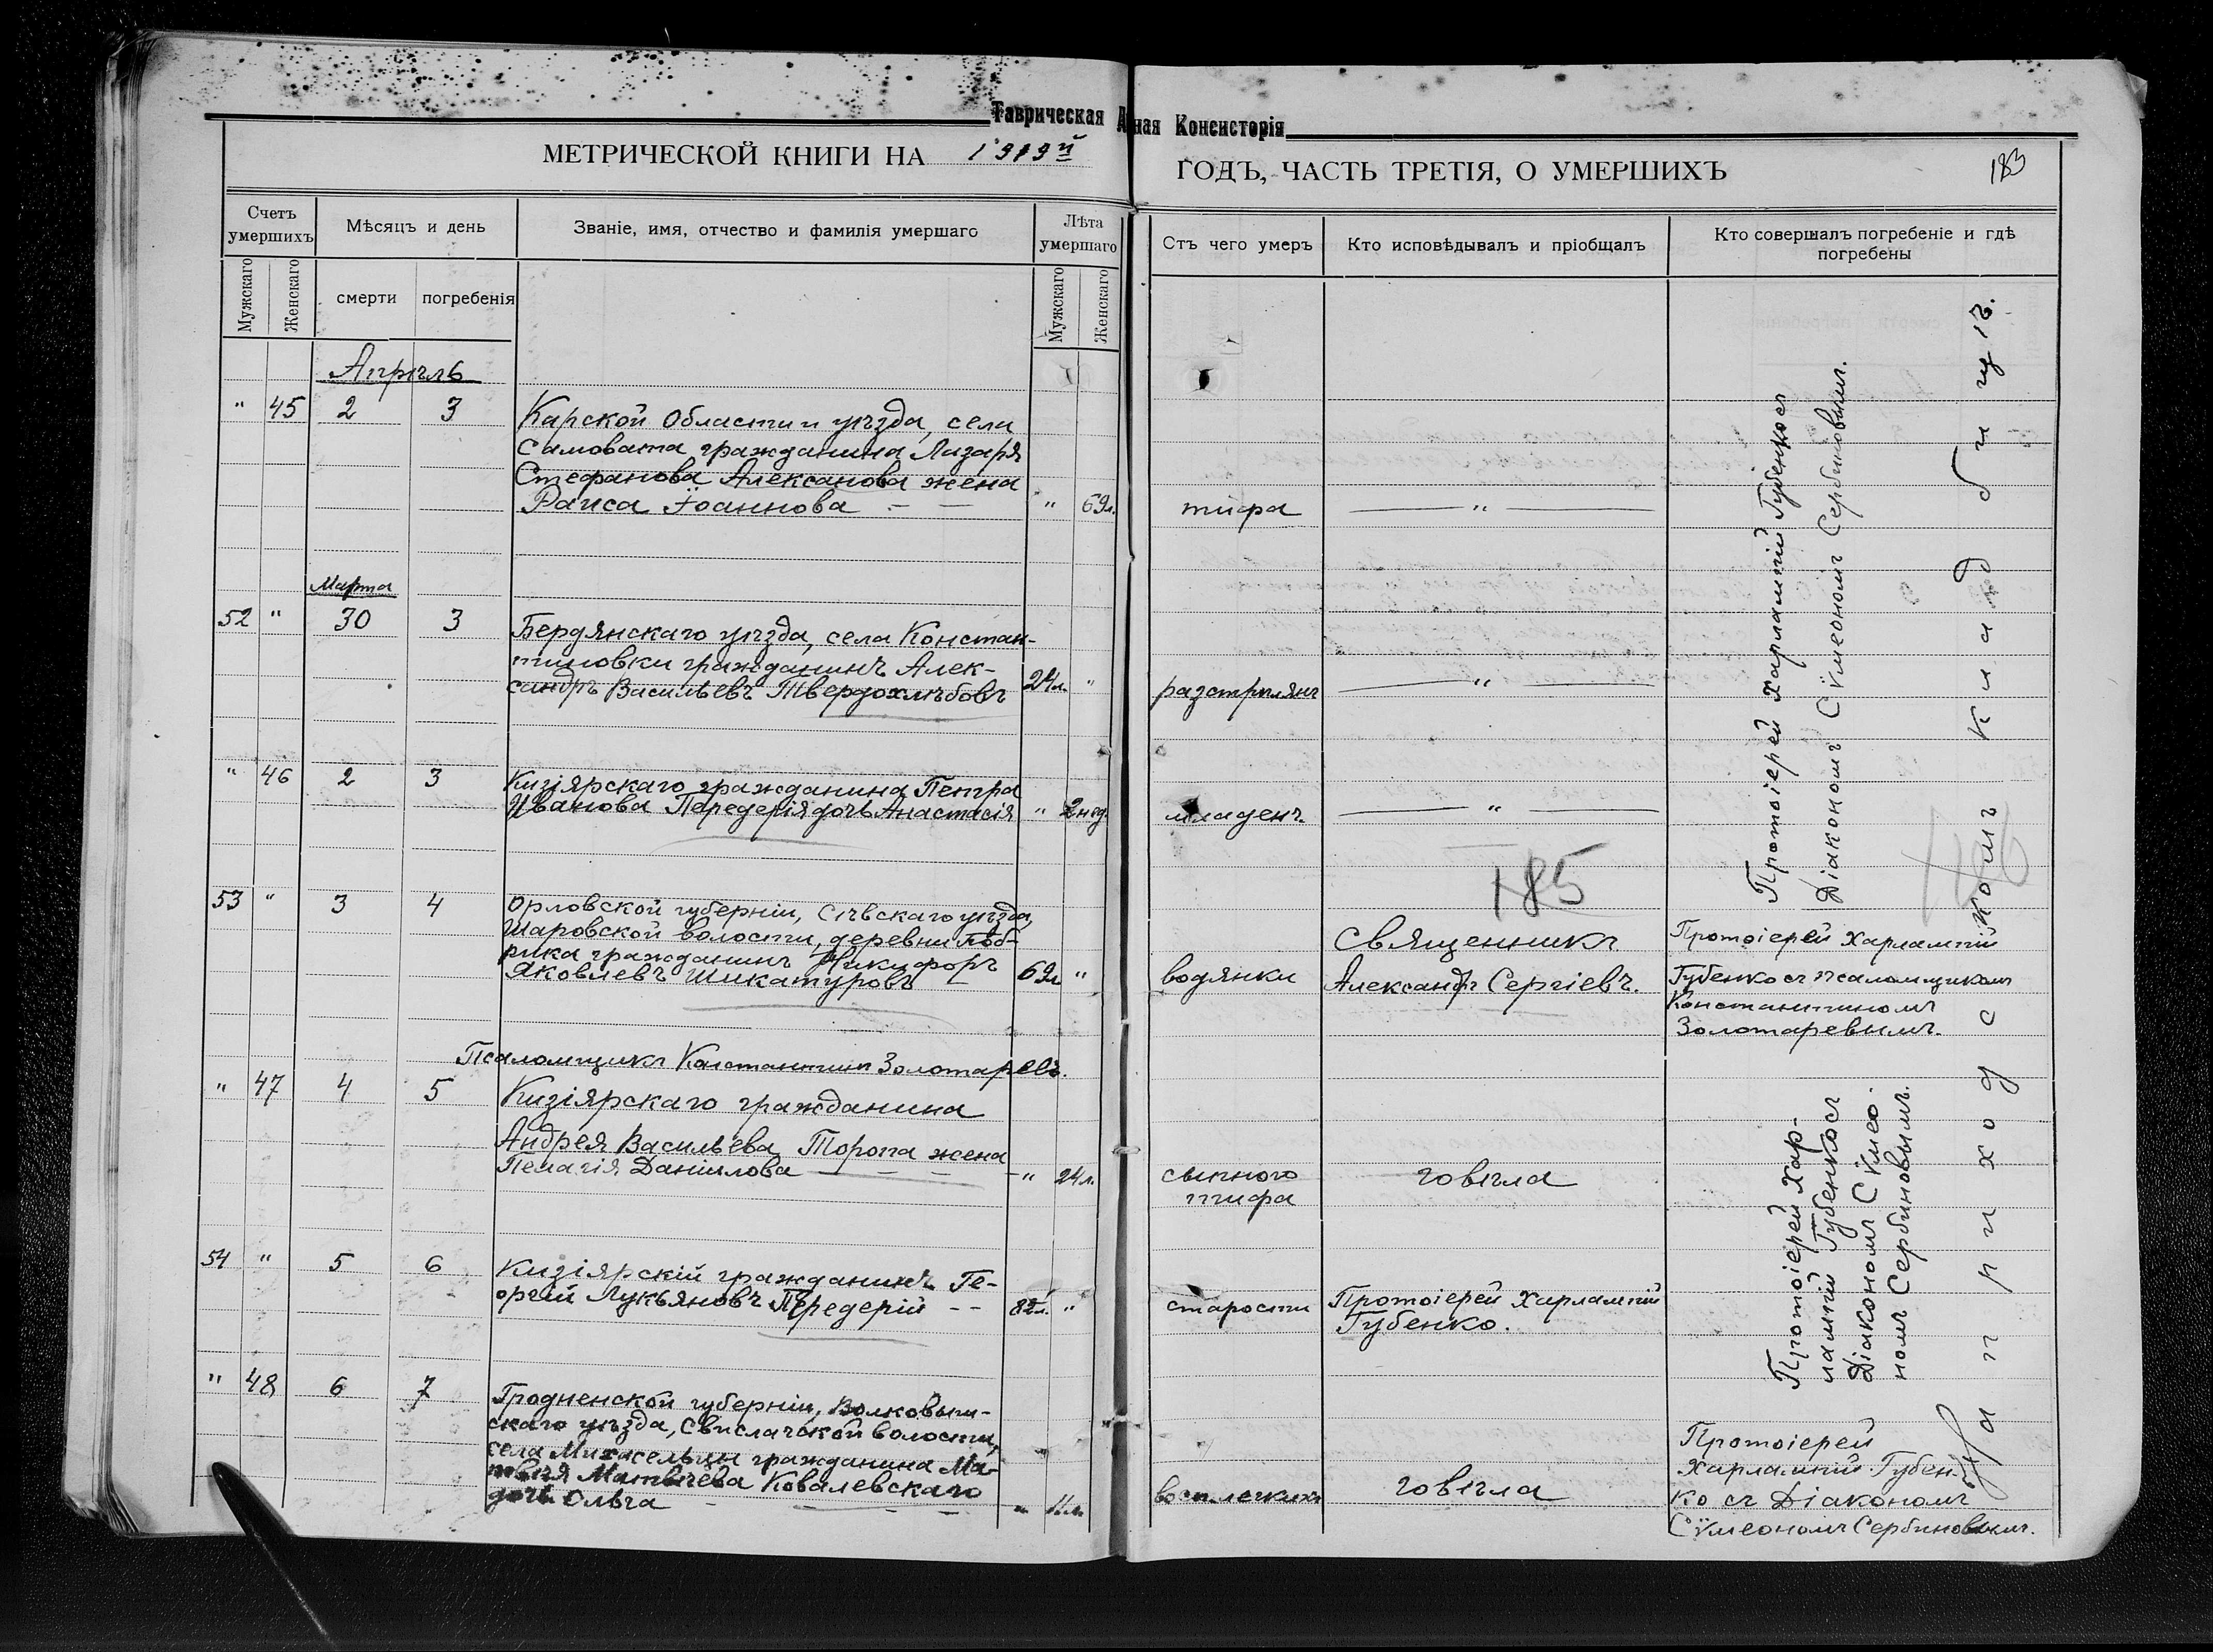 Таврическая Д ная Консисторія
МЕТРИЧЕСКОЙ КНИГИ НА 1919й ГОДЪ, ЧАСТЬ ТРЕТІЯ, О УМЕРШИХЪ
183
Счетъ умершихъ
Мѣсяцъ и день
Званіе, имя, отчество и фамилія умершаго
Лѣта умершаго
Стъ чего умеръ
Кто исповѣдывалъ и пріобщалъ
Кто совершалъ погребеніе и гдѣ погребены
Мужскаго
Женскаго
смерти
погребенія
Мужскаго
Женскаго
Апрѣль
" 45 2 3
Карской Области и уѣзда, села
Симовата гражданина Лазаря
Стефанова Алексанова жена
Раиса Іоаннова — — " 69л. тифа — " —
Марта
52 " 30 3
Бердянскаго уѣзда, села Констан-
тиновки гражданинъ Алек-
сандръ Васильевъ Твердохлѣбовъ 24л. " разстрѣлянъ — " —
" 46 2 3
Кизіярскаго гражданина Петра
Иванова Передерія дочь Анастасія " 2 нед. младенч. — " —
Протоіерей Харлампій Губенко съ
Діакономъ Сѵмеономъ Сербиновымъ.
185
53 " 3 4
Орловской губерніи, Сѣвскаго уѣзда,
Шаровской волости, деревни
гражданинъ Никифоръ
Яковлевъ Шикатуровъ — 69л. " водянки
Священникъ
Александръ Сергіевъ.
Протоіерей Харлампій
Губенко съ псаломщикомъ
Константиномъ
Золотаревымъ.
Псаломщикъ Константинъ Золотаревъ.
" 47 4 5
Кизіярскаго гражданина
Андрея Васильева Торопа жена
Пелагія Даніилова — " 24л. сыпного
тифа
говѣла
54 " 5 6
Кизіярскій гражданинъ Ге-
оргій Лукьяновъ Передерій -- 82л. " старости
Протоіерей Харлампій
Губенко.
Протоіерей Хар-
лампій Губенко съ
Діакономъ Сѵмео-
номъ Сербиновымъ.
" 48 6 7
Гродненской губерніи, Волковыс-
скаго уѣзда, Свислачской волости,
села гражданина Ма-
твѣя Матвѣева Ковалевскаго
дочь Ольга - — — " 11л. восп. легкихъ говѣла
Протоіерей
Харлампій Губен-
ко съ Діакономъ
Сѵмеономъ Сербиновымъ.
На приходскомъ кладбищѣ.